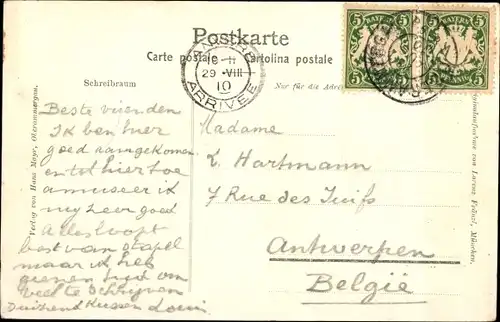 Postkarte
Carte postale Cartolina postale
Schreibraum
Nur für die Adresse
5 BAYERN 5
5 BAYERN 5
10-11
29 VIII
10
ARRIVEE
Beste vrienden
Ik ben hier
goed aangekomen
en tot hiertoe
amuseer ik
mij zeer goed
Alles loopt
best van stapel
maar ik heb
geenen tijd om
veel te schrijven
Duizend Kussen Louis
Madame
L. Hartmann
7 Rue des Juifs
Antwerpen
Belgie
Verlag von Hans Mayr, Oberammergau.
Originalaufnahme von Lorenz Fränzl, München.